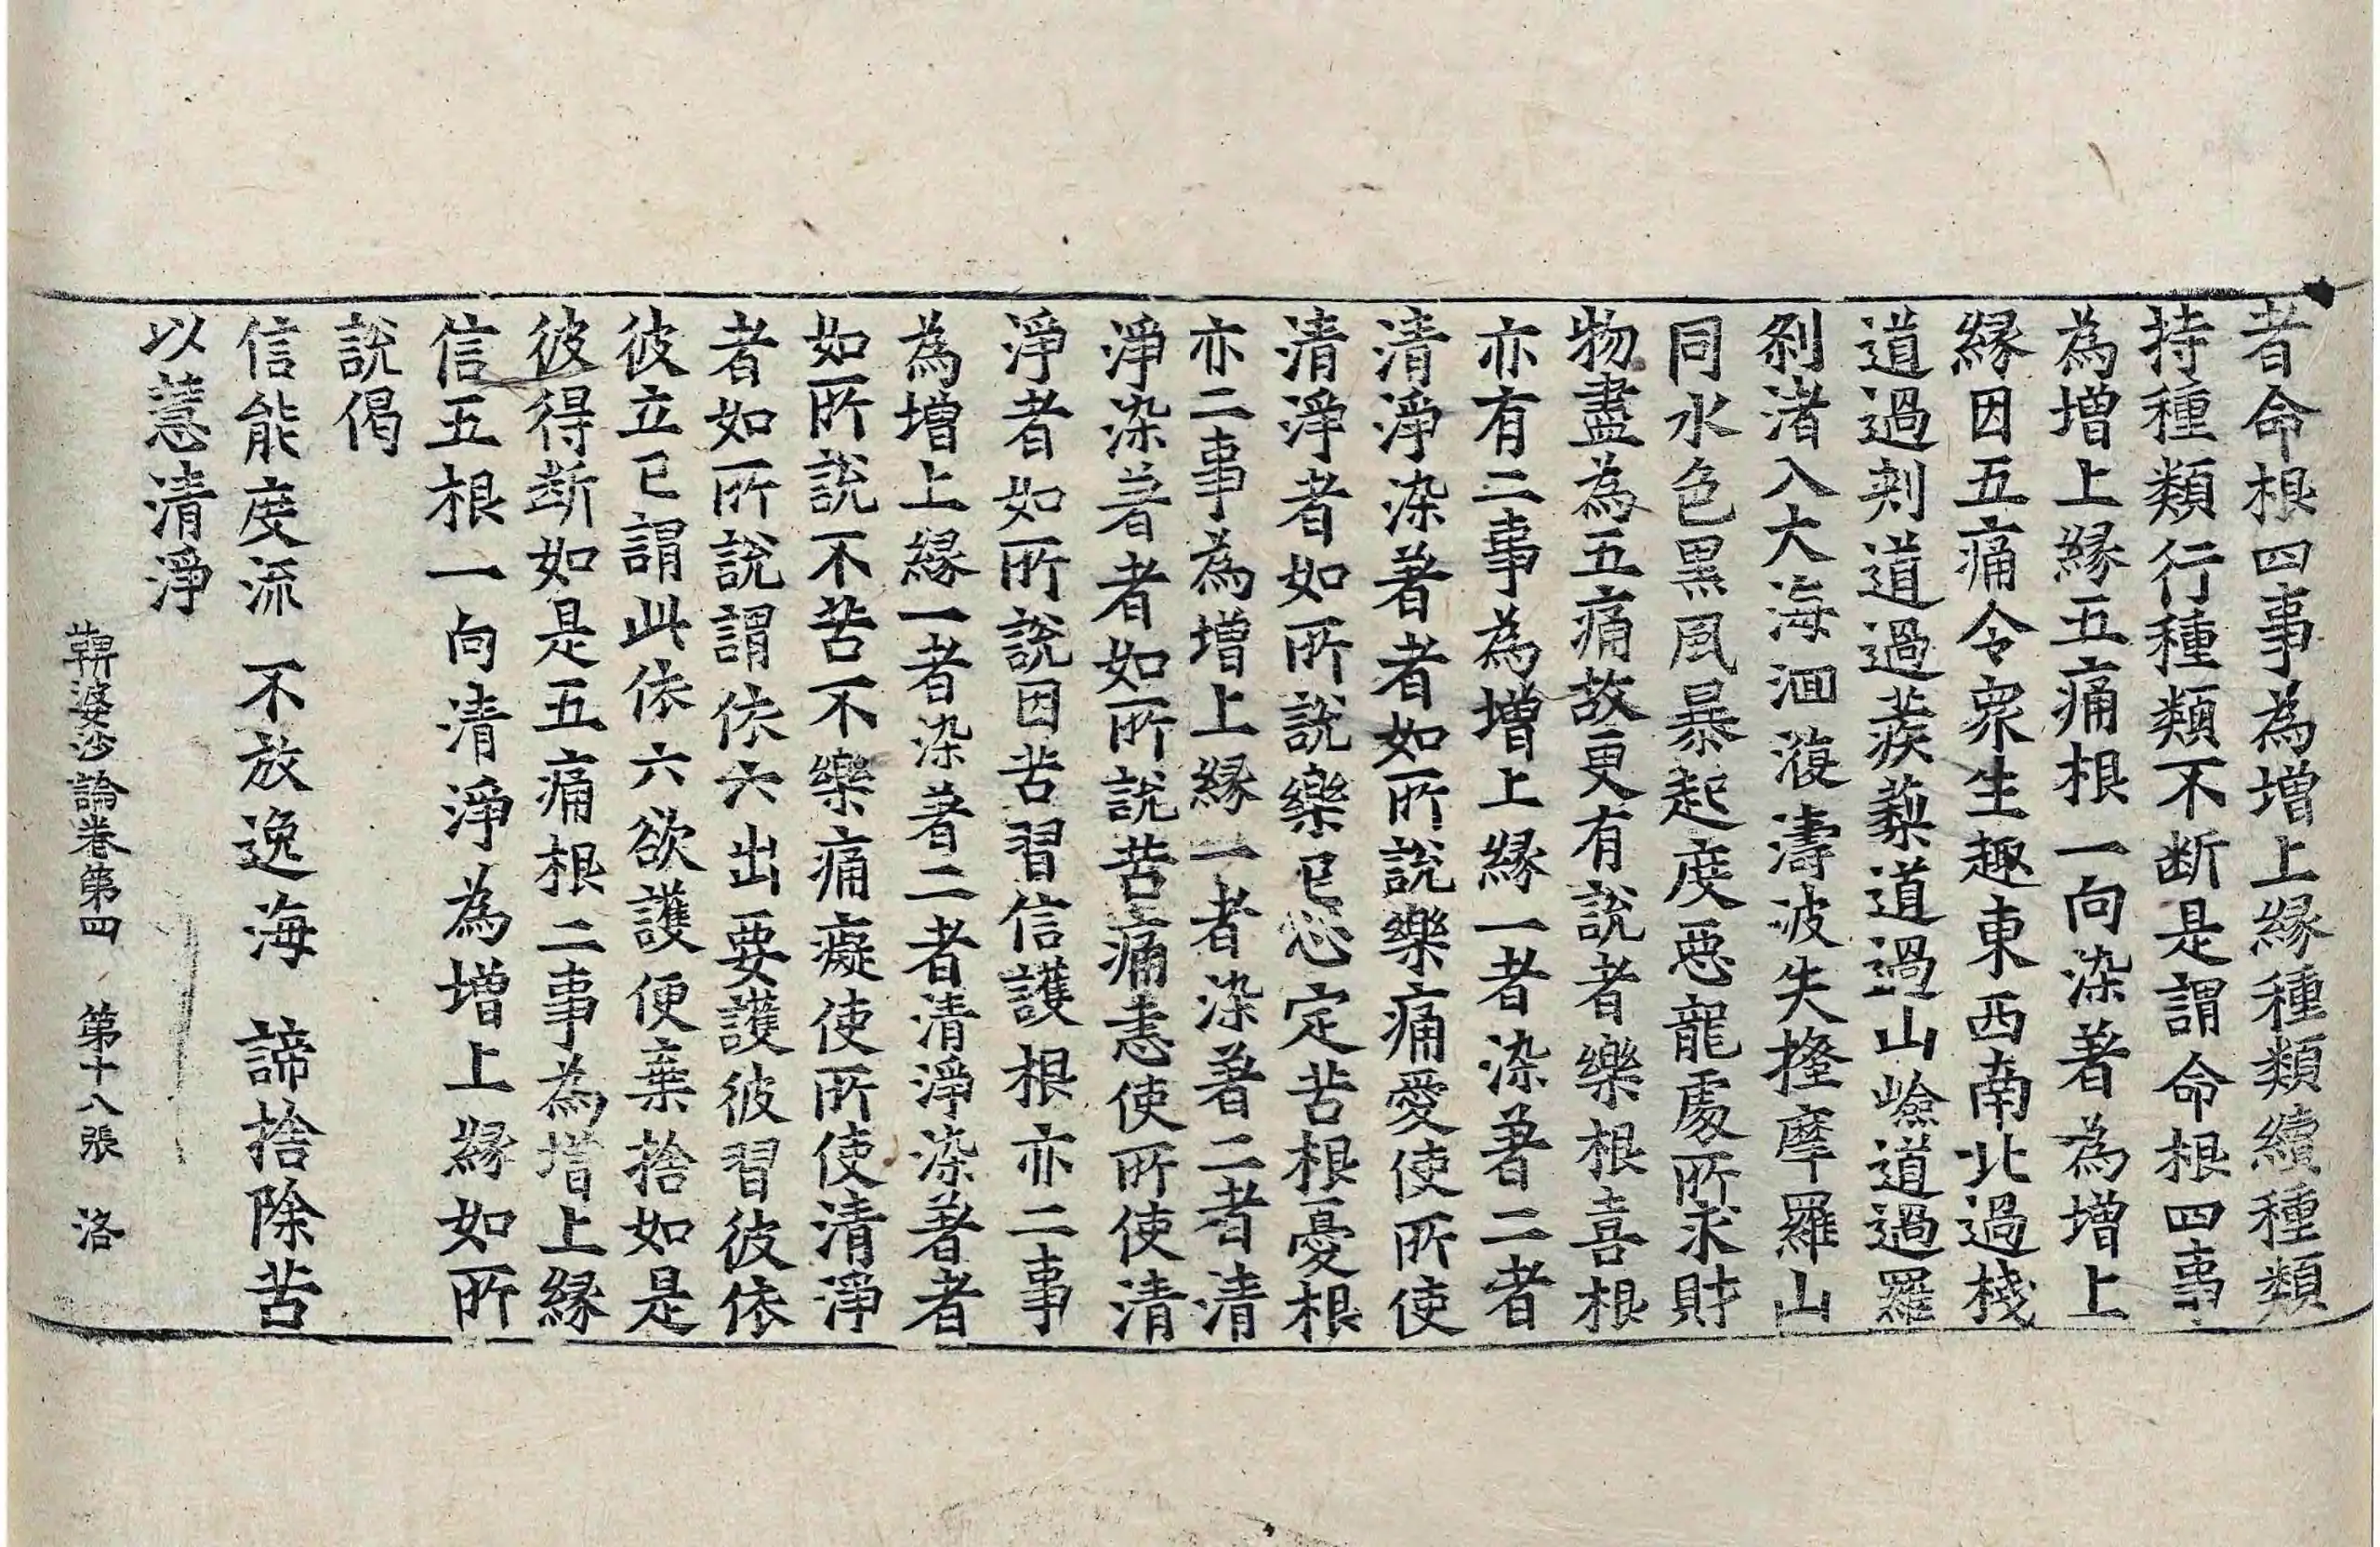 者命根四事為增上緣種類續種類
持種類行種類不斷是謂命根四事
為增上緣五痛根一向染著為增上
緣因五痛令衆生趣東西南北過棧
道過剗道過蒺藜道過山嶮道過羅
剎渚入大海洄澓濤波失摐摩羅山
同水色黑風暴起度惡龍處所求財
物盡為五痛故更有說者樂根喜根
亦有二事為增上緣一者染著二者
清淨染著者如所說樂痛愛使所使
清淨者如所說樂已心定苦根憂根
亦二事為增上緣一者染著二者清
淨染著者如所說苦痛恚使所使清
淨者如所說因苦習信護根亦二事
為增上緣一者染著二者清淨染著者
如所說不苦不樂痛癡使所使清淨
者如所說謂依六出要護彼習彼依
彼立已謂此依六欲護便棄捨如是
彼得斷如是五痛根二事為增上緣
信五根一向清淨為增上緣如所
說偈
信能度流 不放逸海 諦捨除苦
以慧清淨
鞞婆沙論卷第四 第十八張 洛